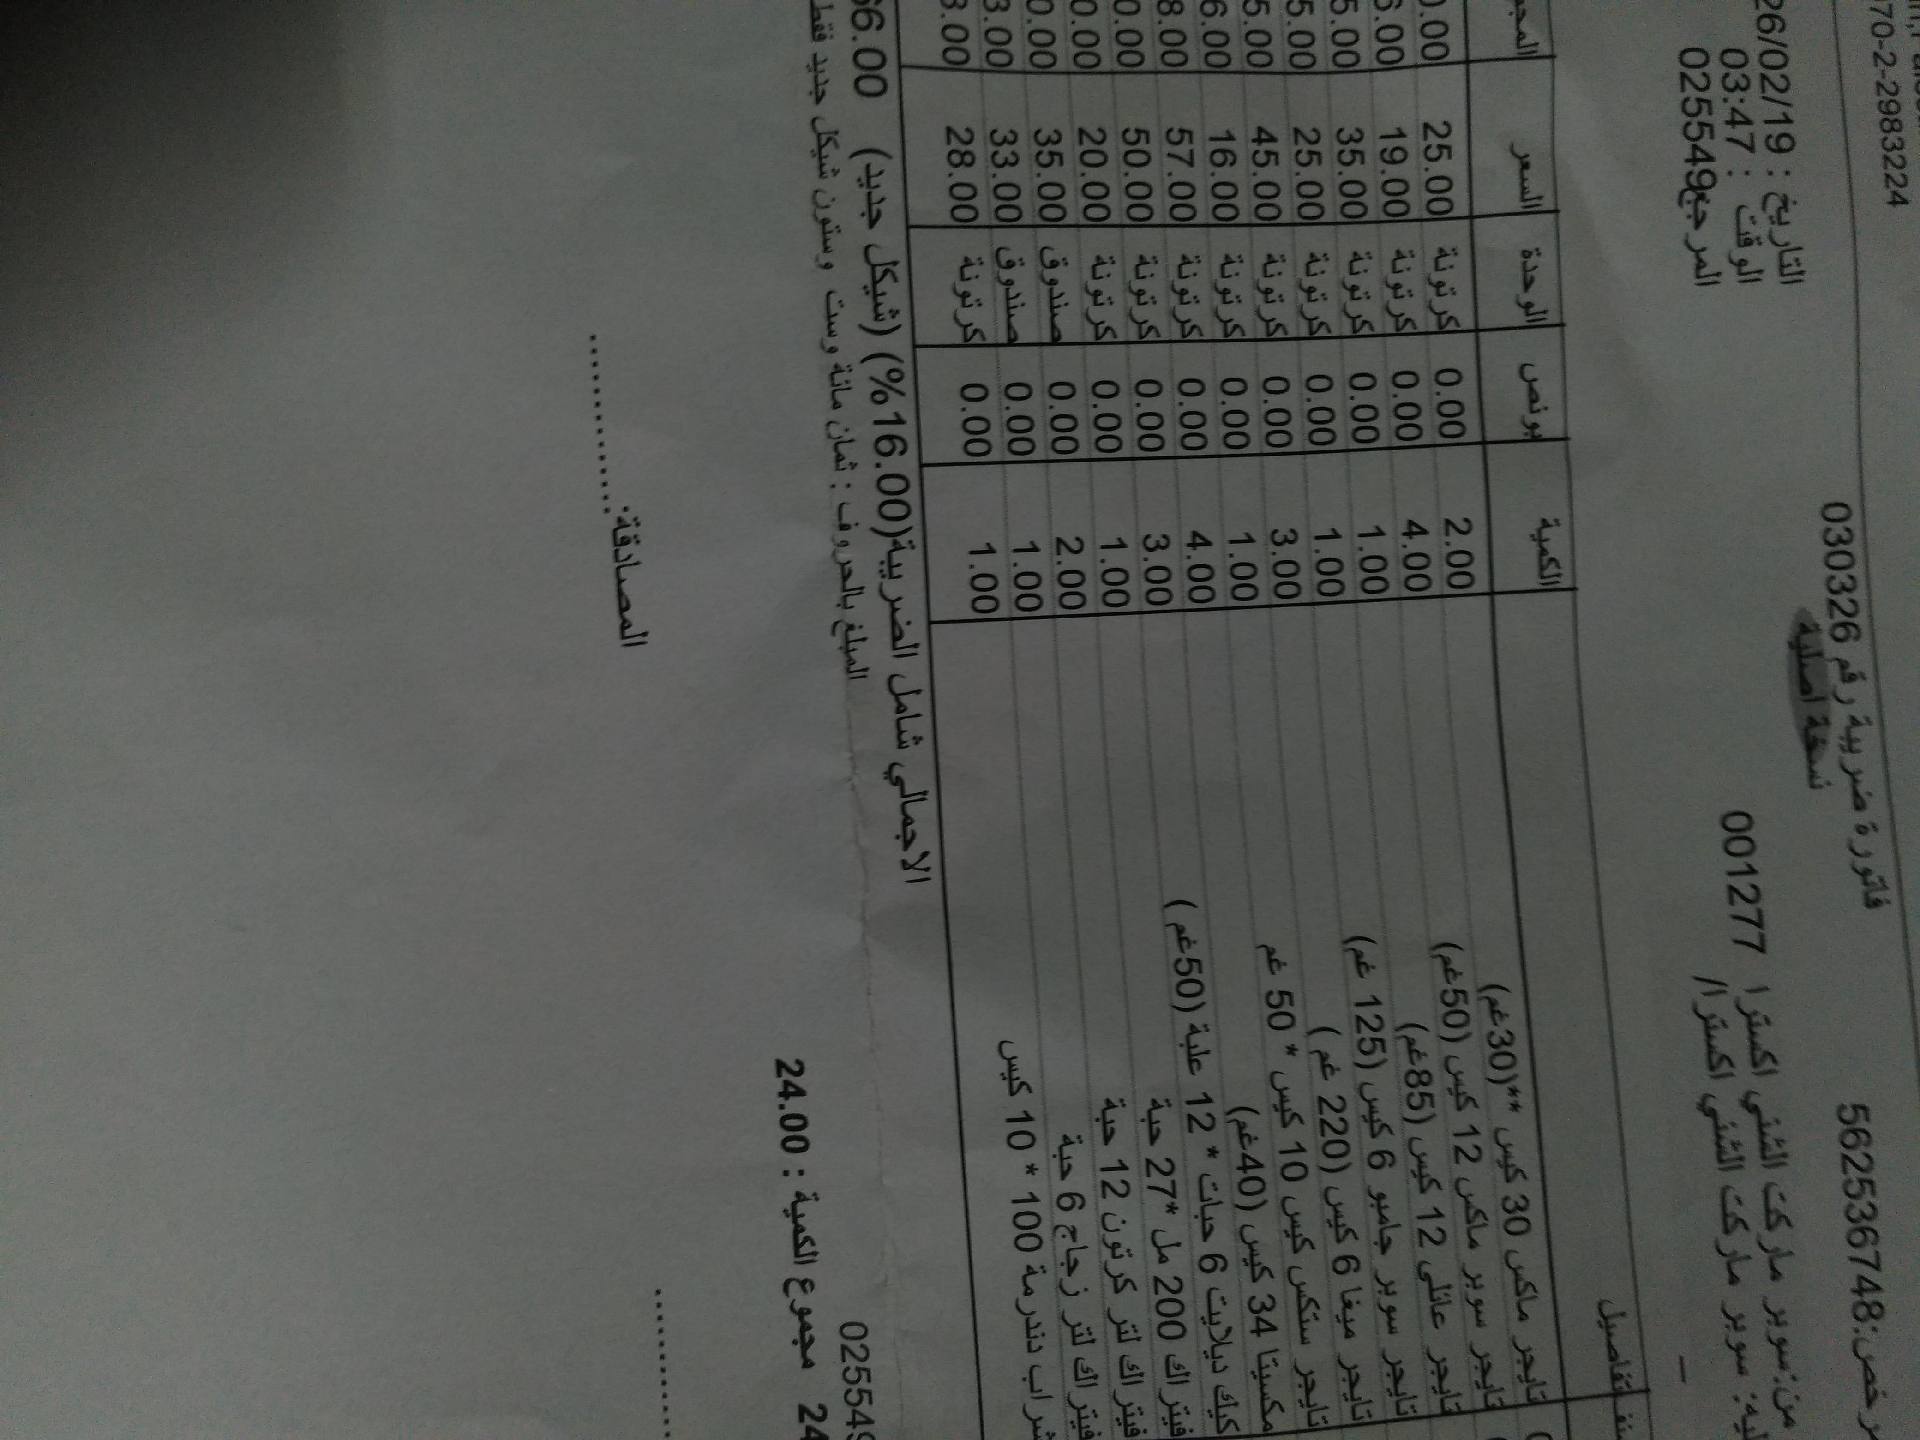 70-2-2983224
مرخص:562536748
فاتورة ضريبية رقم 030326
نسخة اصلية
26/02/19 : التاريخ
03:47 : الوقت
المرجع025549
من:سوبر ماركت الثني اكسترا 001277
ليه: سوبر ماركت الثني اكسترا/ –
التفاصيل الكمية بونص الوحدة السعر المجم
تايجر ماكس 30 كيس **(30غم) 2.00 0.00 كرتونة 25.00 0.00
تايجر سوبر ماكس 12 كيس (50غم) 4.00 0.00 كرتونة 19.00 6.00
تايجر عائلي 12 كيس (85غم) 1.00 0.00 كرتونة 35.00 5.00
تايجر سوبر جامبو 6 كيس (125 غم) 1.00 0.00 كرتونة 25.00 5.00
تايجر ميغا 6 كيس (220 غم ) 3.00 0.00 كرتونة 45.00 5.00
تايجر ستكس كيس 10 كيس * 50 غم 1.00 0.00 كرتونة 16.00 6.00
مكسيتا 34 كيس (40غم) 4.00 0.00 كرتونة 57.00 8.00
كيك ديلايت 6 حبات * 12 علبة (50غم ) 3.00 0.00 كرتونة 50.00 0.00
فيتراك 200 مل *27 حبة 1.00 0.00 كرتونة 20.00 0.00
فيتراك لتر كرتون 12 حبة 2.00 0.00 صندوق 35.00 0.00
فيتراك لتر زجاج 6 حبة 1.00 0.00 صندوق 33.00 3.00
شراب دندرمة 100 * 10 كيس 1.00 0.00 كرتونة 28.00 3.00
الاجمالي شامل الضريبية(16.00%) (شيكل جديد) 66.00
المبلغ بالحروف : ثمان مائة وست وستون شيكل جديد فقط
025549
24 مجموع الكمية : 24.00
المصادقة:............